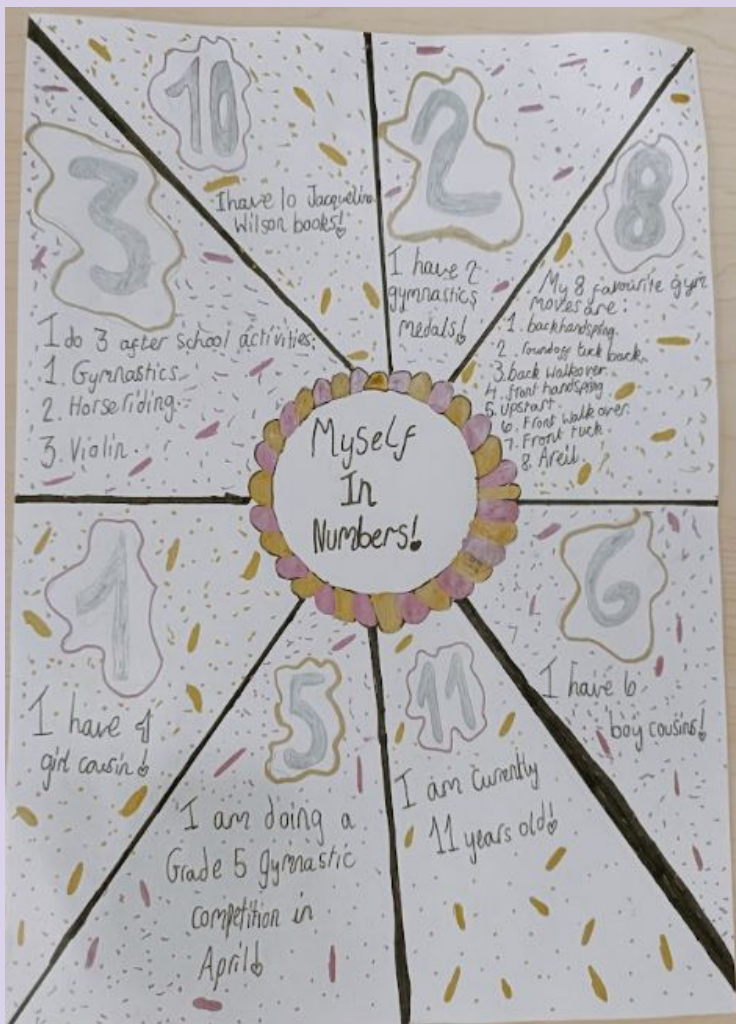 Myself
In
Numbers!
10
I have 10 Jacqueline
Wilson books!
2
I have 2
gymnastics
medals!
8
My 8 favourite gym
moves are:
1. backhandspring
2. roundoff tuck back
3. back walkover
4. front handspring
5. upstart
6. Front walkover
7. Front tuck
8. Areil
6
I have 6
boy cousins!
11
I am currently
11 years old!
5
I am doing a
Grade 5 gymnastic
competition in
April!
1
I have 1
girl cousin!
3
I do 3 after school activities:
1 Gymnastics
2. Horse riding
3. Violin